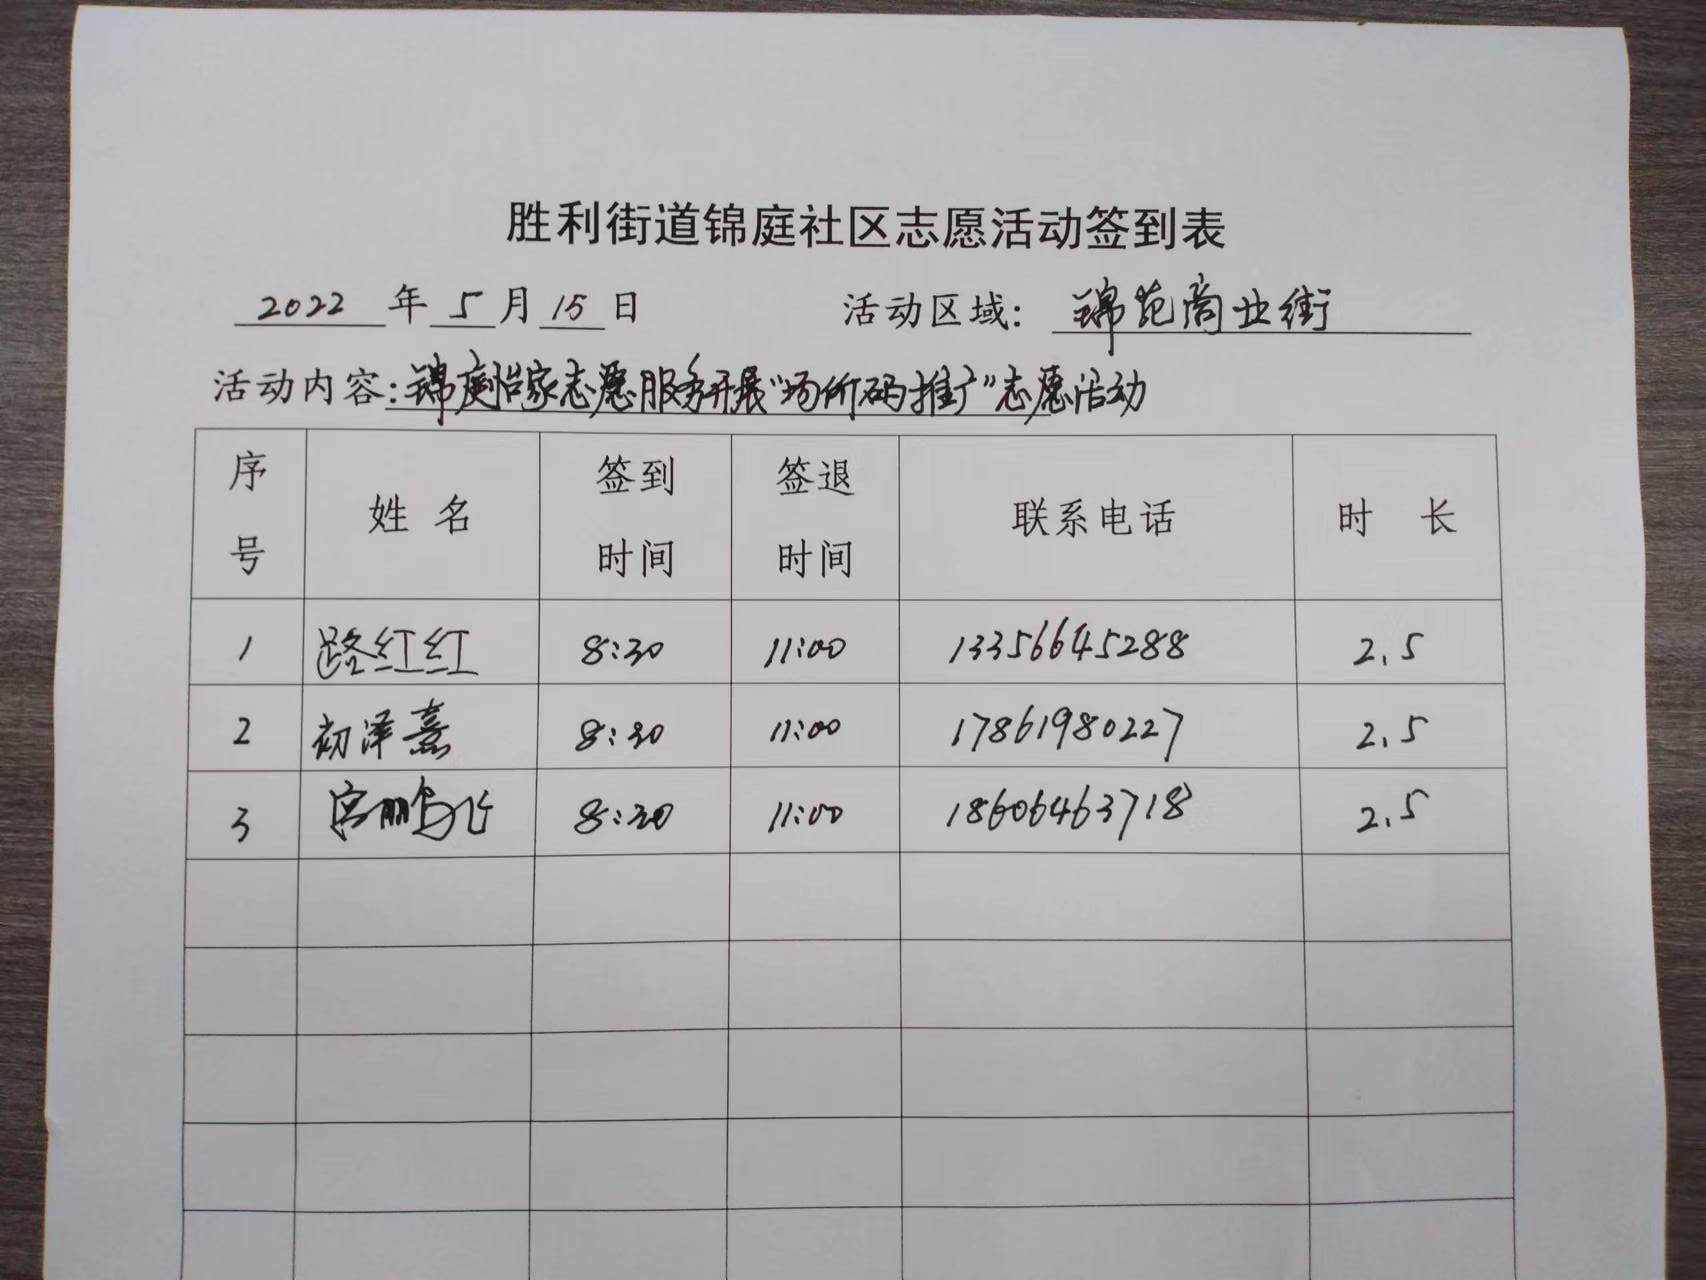 胜利街道锦庭社区志愿活动签到表
2022年5月15日 活动区域：锦苑商业街
活动内容：锦庭怡家志愿服务开展“场所码推广”志愿活动
序号 姓名 签到时间 签退时间 联系电话 时长
1 路红红 8:30 11:00 13356645288 2.5
2 初泽熹 8:30 11:00 17861980227 2.5
3 宫鹏飞 8:30 11:00 18606463718 2.5